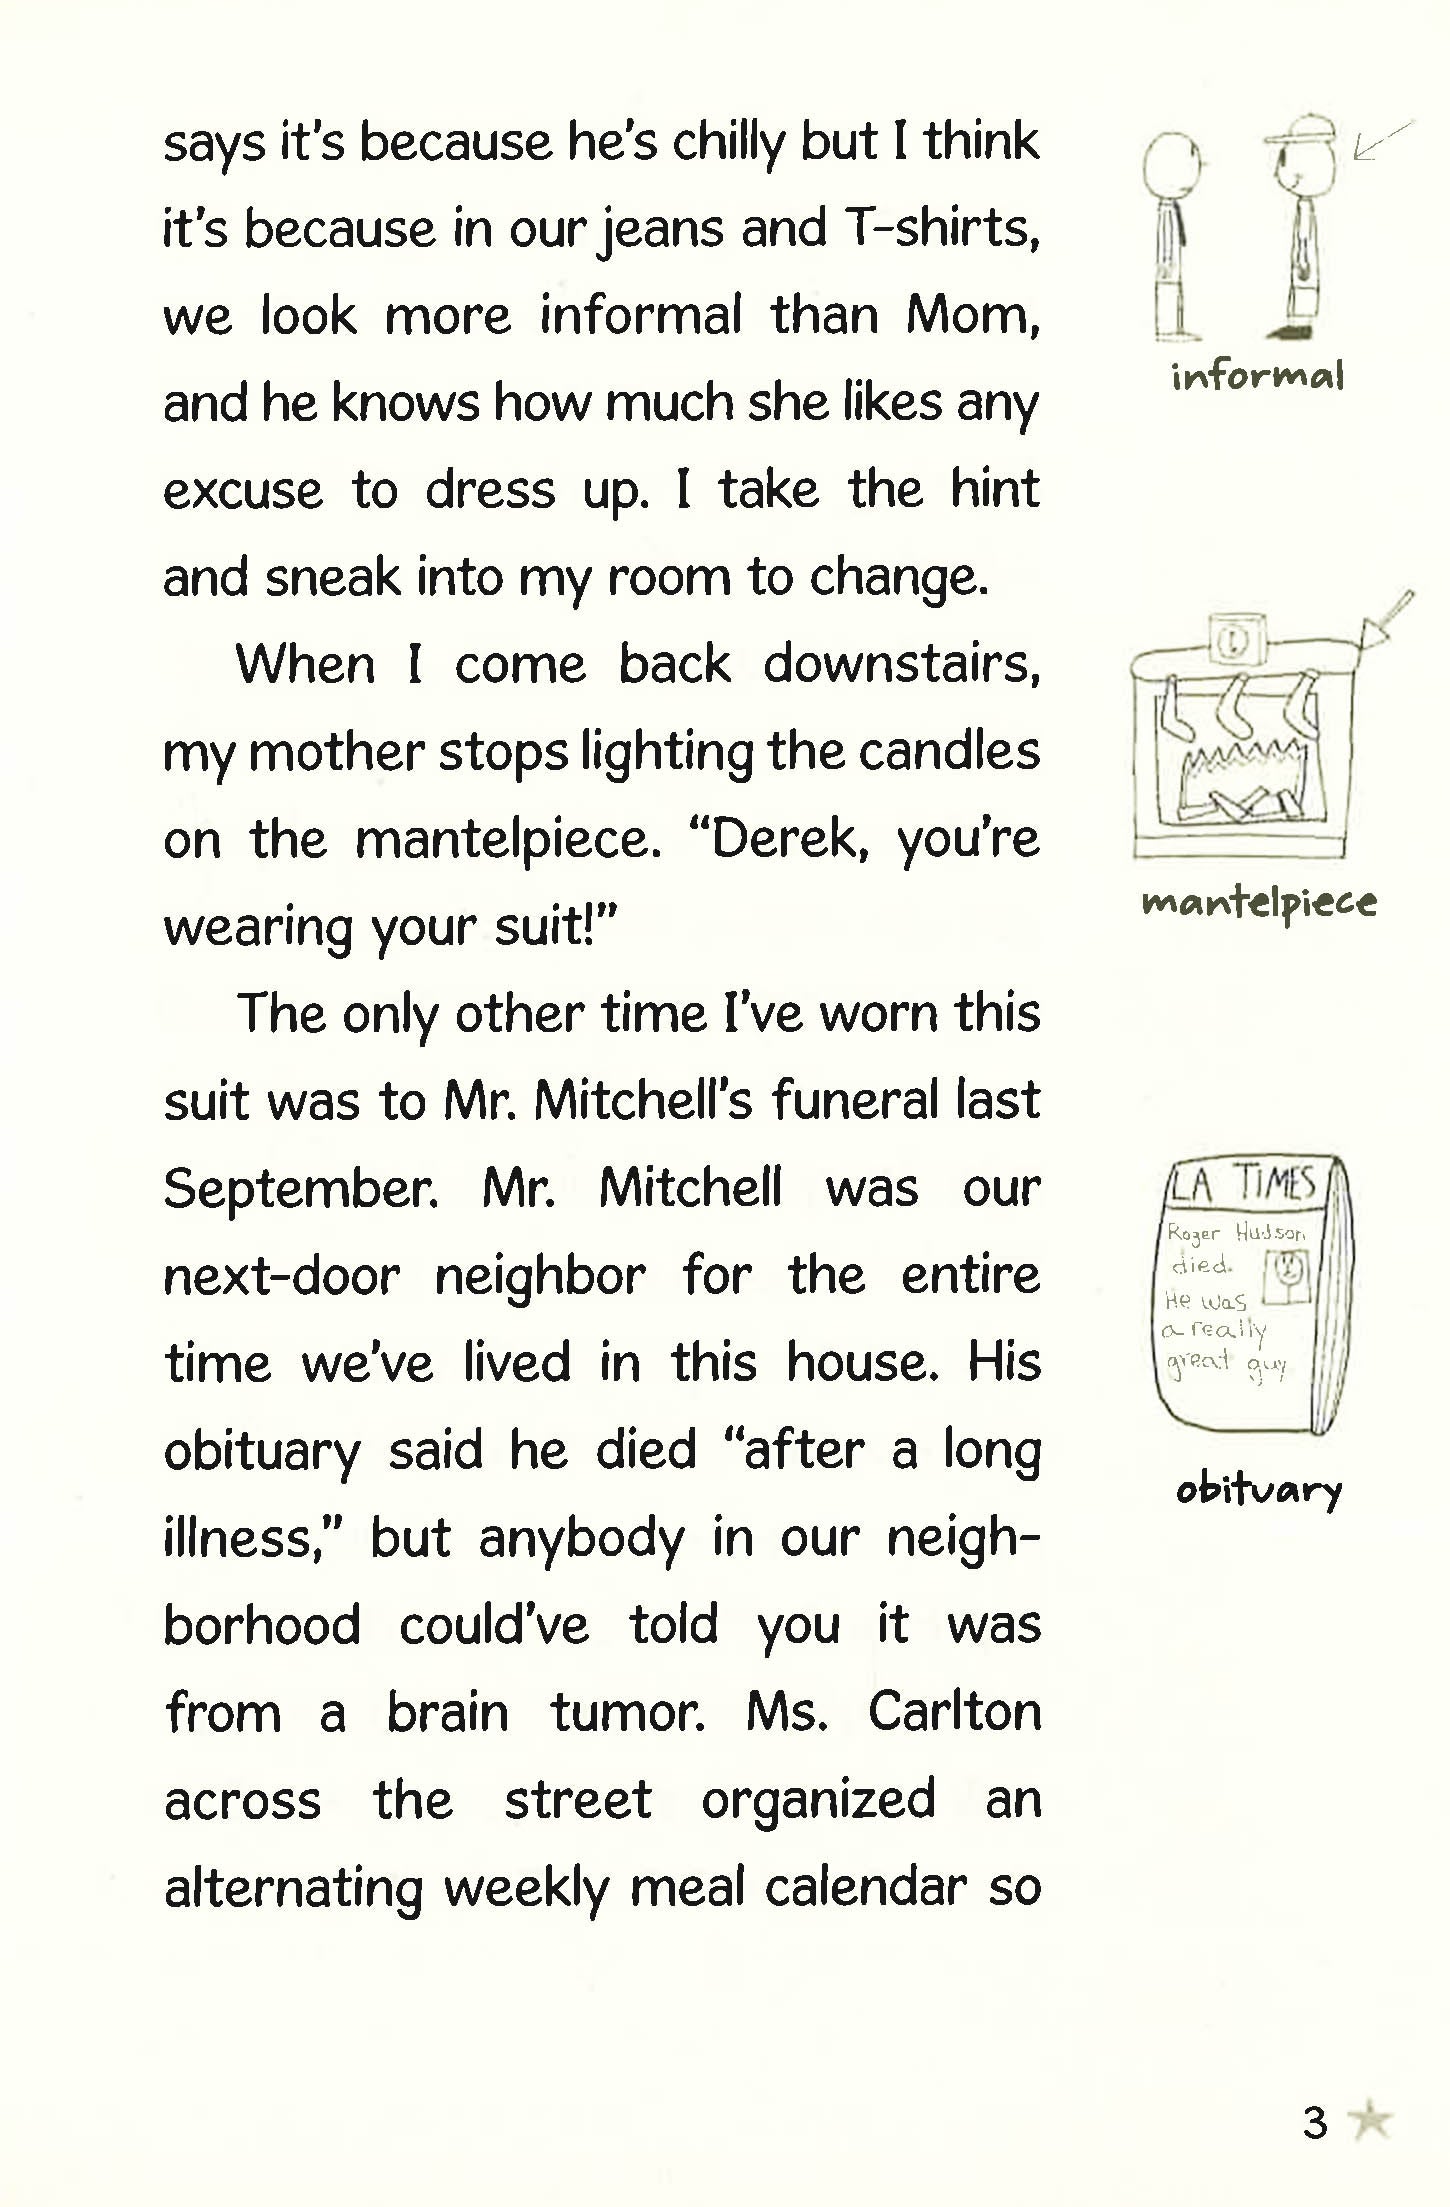 says it's because he's chilly but I think
it's because in our jeans and T-shirts,
we look more informal than Mom,
and he knows how much she likes any
excuse to dress up. I take the hint
and sneak into my room to change.
When I come back downstairs,
my mother stops lighting the candles
on the mantelpiece. “Derek, you're
wearing your suit!”
The only other time I've worn this
suit was to Mr. Mitchell's funeral last
September. Mr. Mitchell was our
next-door neighbor for the entire
time we've lived in this house. His
obituary said he died “after a long
illness,” but anybody in our neigh-
borhood could've told you it was
from a brain tumor. Ms. Carlton
across the street organized an
alternating weekly meal calendar so
informal
mantelpiece
LA TIMES
Roger Hudson
died.
He was
a really
great guy
obituary
3